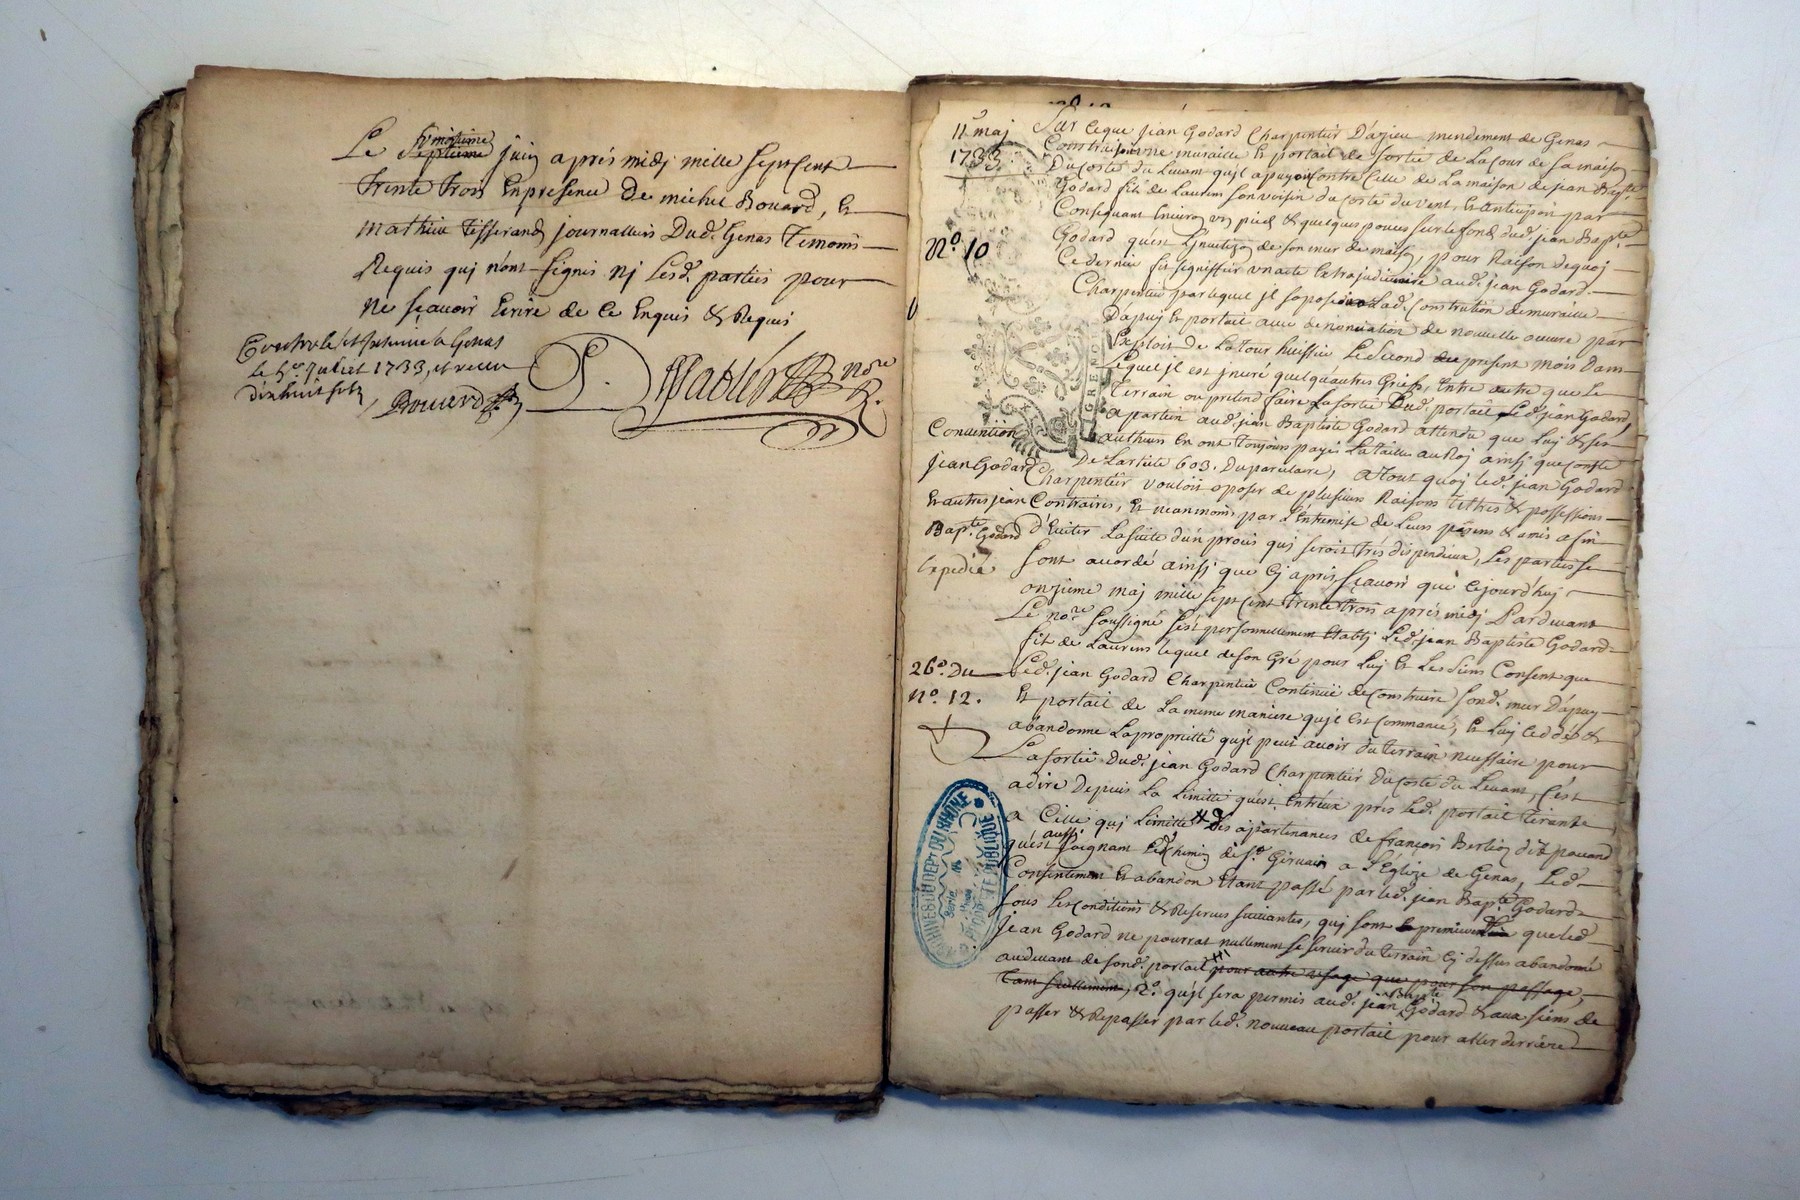 Le Septieme juin après midj mille sept cent
trente trois En presence de michel Bouard, Et
mathieu Tisserand journalliers Dud. Genas Temoins
Requis quj n'ont signés nj Lesd. parties pour
ne sçavoir Ecrire de ce Enquis & Requis
Controlé et à Genas
le 5e. Juillet 1733, et receu
dixhuit sols
Bouard
nore
11e maj
1733.
No. 10
Convention
jean Godard
Et autre jean
Bapte. Godard
Expedié
26e. Du
No. 12.
Sur Ceque jean Godard Charpentier D'azieu mendement de Genas
Construisoit une muraille Et portail de sortie de La Cour de sa maison
Du Costé du Levant qu'jl apuyoit contre Celle de La maison de jean Bapte.
Godard fils de Laurens son voisin du Costé du vent, Et anticipoit par
Consequant Environ un pied & quelques pouces sur le fond dud. jean Bapte.
Godard qu'est de son mur de maison, pour Raison dequoj
Ce dernier fit signiffier un acte Extrajudiciaire aud. jean Godard
Charpentier par lequel jl s'oposoit a Lad. Construction de muraille
D'apuy Et portail avec denonciation de nouvelle oeuvre par
Exploit de Latour huissier Le second du present mois Dans
Lequel jl est jnseré quelqu'autres Griefs, Entre autre que Le
Terrain ou pretend faire La sortie Dud. portail Led. jean Godard,
apartien aud. jean Baptiste Godard attendu que Luy & ses
autheurs En ont toujours payés La taille au Roj ainsj que conste
De L'article 603. Du parcelaire, a tout quoj led. jean Godard
Charpentier vouloit oposer de plusieurs Raisons tiltres & possessions
Contraires, Et neanmoins par L'Entremise de Leurs parens & amis afin
d'Eviter La suitte d'un procés quj seroit trés dispendieux, Les parties se
sont acordé ainsj que Cj aprés sçavoir que cejourd'huj
onzieme maj mille sept cent trente trois aprés midj Pardevant
Le nore. soussigné s'est personnellement Etablj Led. jean Baptiste Godard
fils de Laurens lequel de son Gré pour Luj Et Les siens Consent que
Led. jean Godard Charpentier Continue de Construire sond. mur D'apuy
Et portail de La meme maniere qu'jl Est Commancé, Et Luj cedde &
abandonne La proprietté qu'jl peut avoir du terrain necessaire pour
La sortie Dud. jean Godard Charpentier Du Costé du Levant, C'est
a dire Depuis La Limitte qu'est Entr'eux prés Led. portail tirante
a Celle quj Limitte Les apartenances de françois Berlioz dit pouand
qu'est aussj joignant Le Chemin de St. Gervais a L'Eglize de Genas, Led.
Consentement Et abandon Etant passé par led. jean Bapte. Godard
sous Les Conditions & Reserves suivantes, quj sont premierement que led.
jean Godard ne pourrat nullement se servir du terrain Cj dessus abandonné
audevant de sond. portail pour autre usage que pour son passage,
tant seullement, 2o. qu'jl sera permis aud. jean Bapte. Godard & aux siens de
passer & Repasser par led. nouveau portail pour aller derriere
GRENO
ARCHIVES DU DEPT DU RHONE
PROPRIETE PUBLIQUE